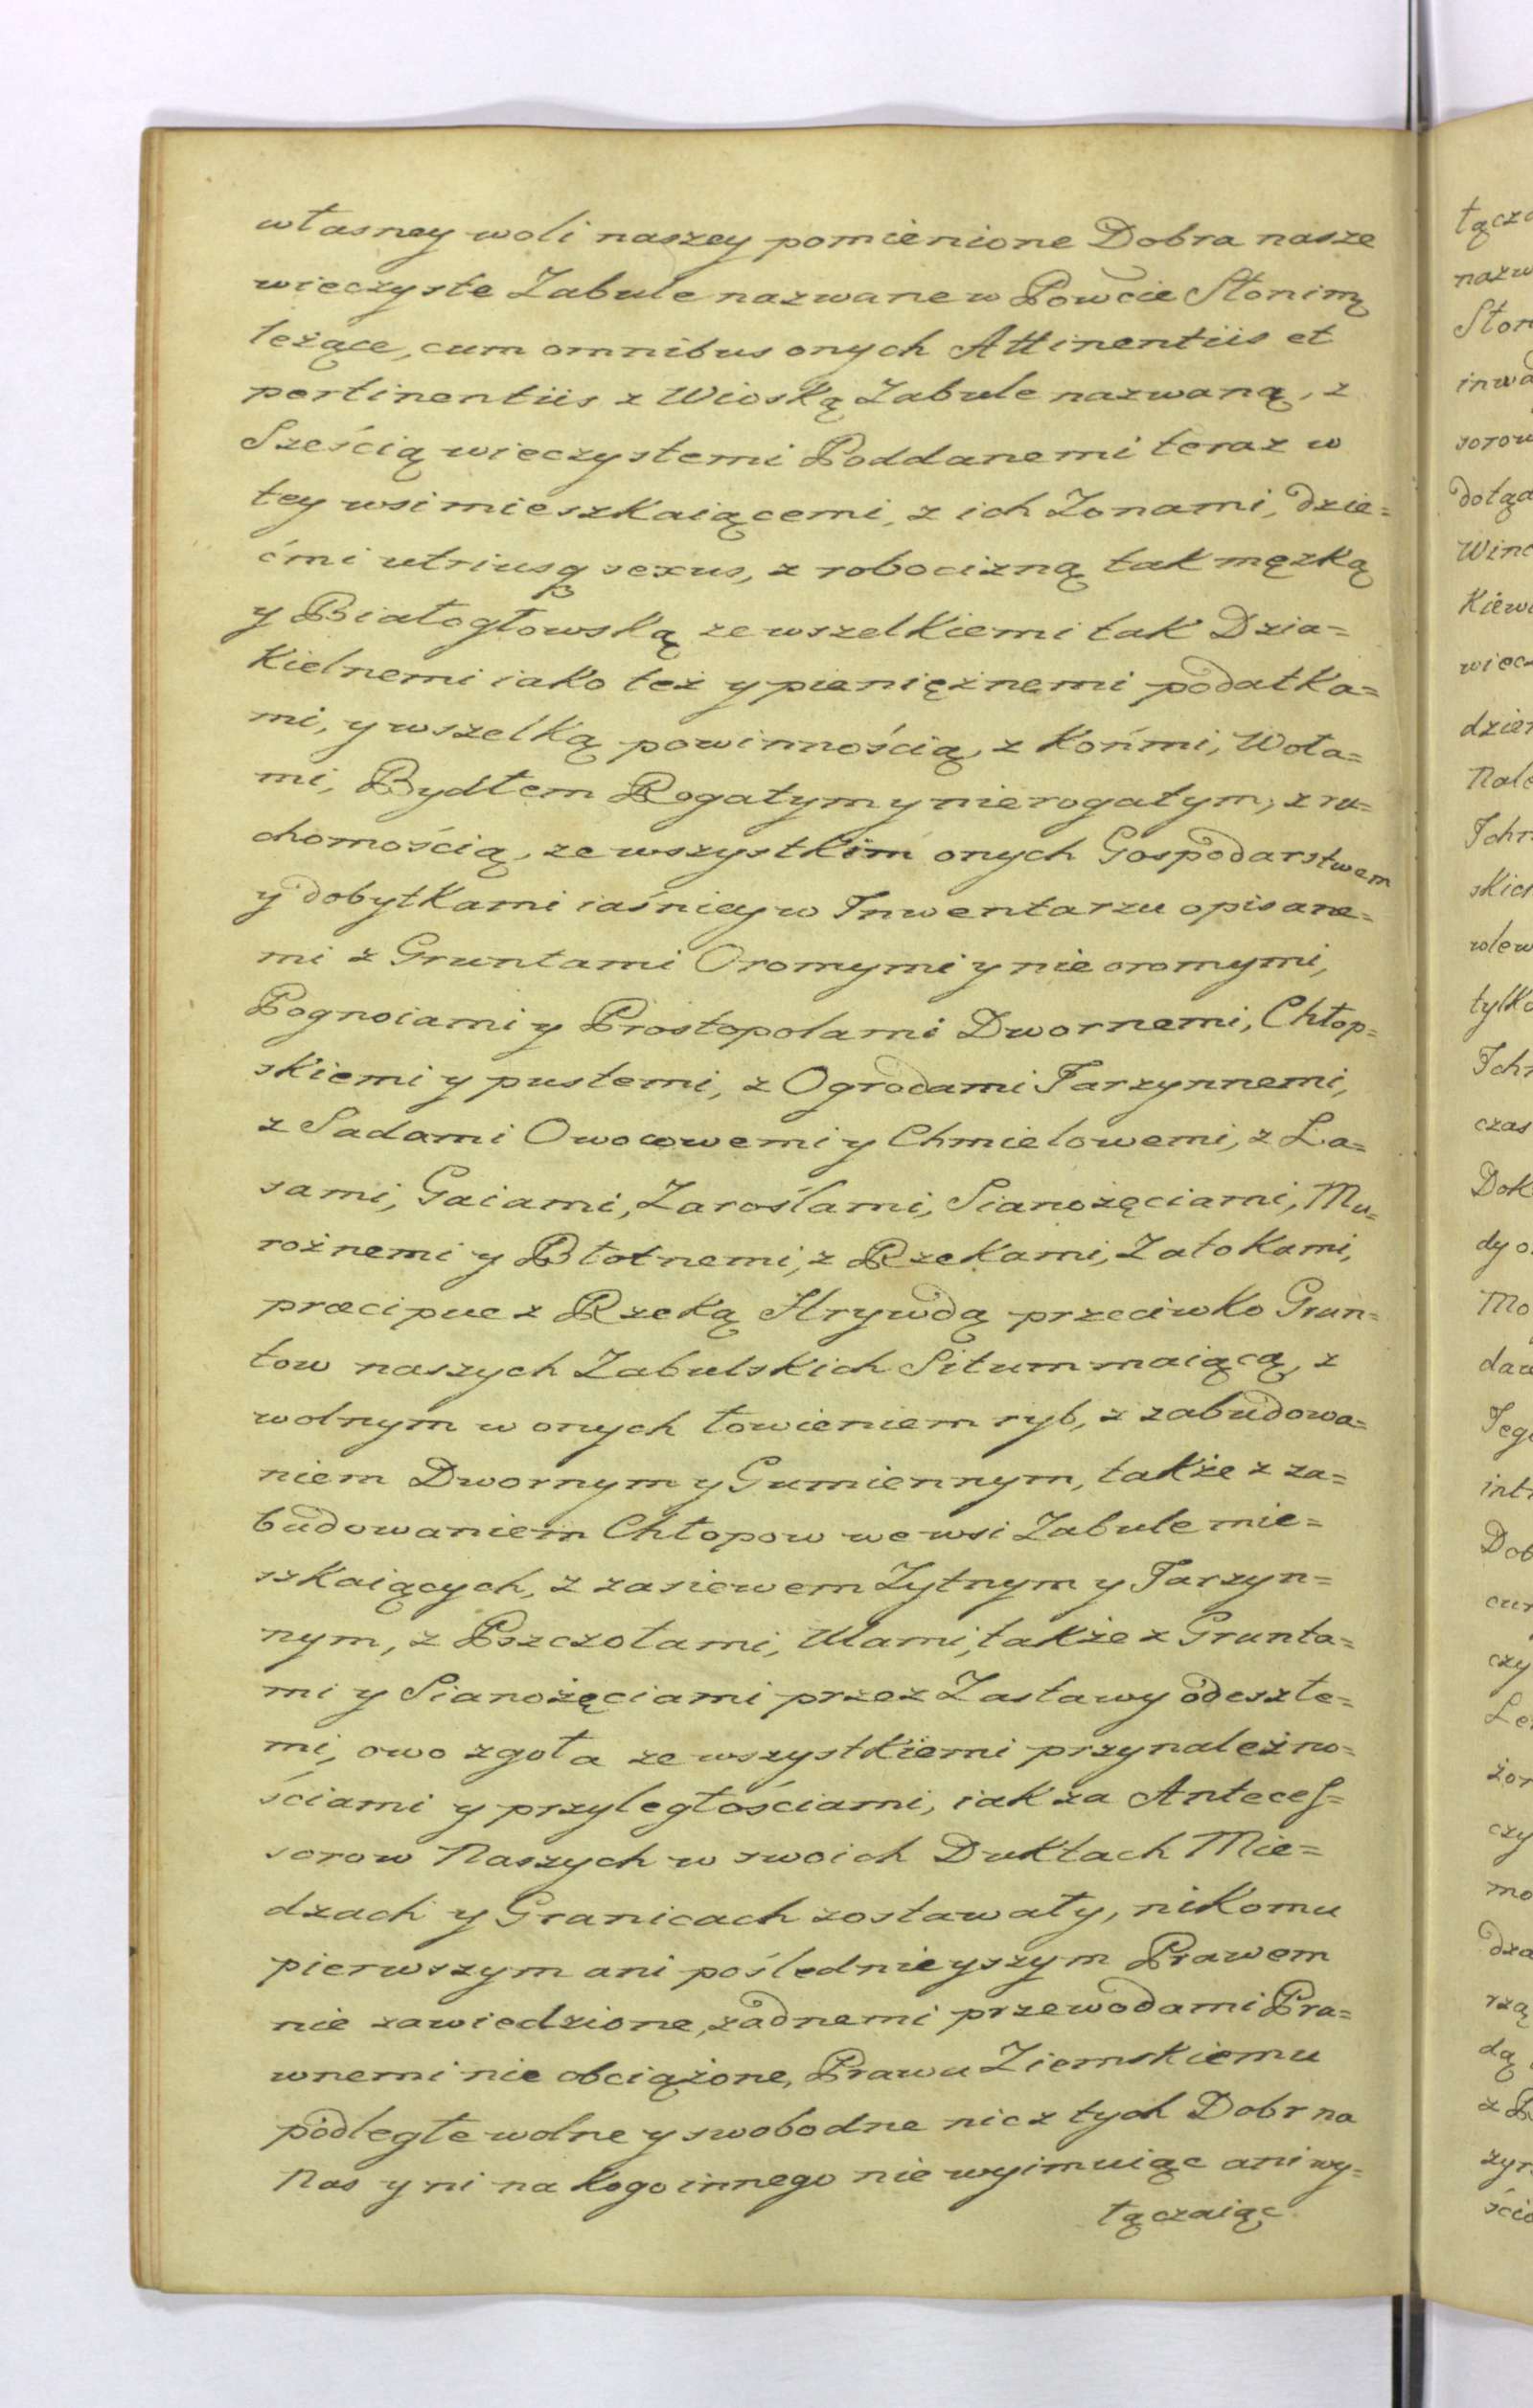 własney woli naszey pomienione Dobra nasze
wieczyste Zabule nazwane w Powcie Słonimą
leżące, cum omnibus onych Attinentiis et
pertinentiis z Wioską Zabule nazwaną, z
Sześcią wieczystemi Poddanemi teraz w
tey wsi mieszkaiącemi, z ich Zonami, dzie=
ćmi utriusq sexus, z robocizną tak męzką
y Białogłowską ze wszelkiemi tak Dzia=
kielnemi iako też y pieniężnemi podatka=
mi, y wszelką powinnością, z końmi, Woła=
mi, Bydłem Rogatym y nierogatym, z ru=
chomością, ze wszystkim onych Gospodarstwem
y dobytkami iaśniey w Inwentarzu opisane=
mi z Gruntami Oromymi y nie oromymi,
Pognoiami y Prostopolami Dwornemi, Chłop=
skiemi y pustemi, z Ogrodami Jarzynnemi,
z Sadami Owocowemi y Chmielowemi, z La=
sami, Gaiami, Zaroślami, Sianożęciami, Mu=
rożnemi y Błotnemi, z Rzekami, Zatokami,
præcipue z Rzeką Hrywdą przeciwko Grun=
tow naszych Zabulskich Situm maiącą, z
wolnym w onych łowieniem ryb, z zabudowa=
niem Dwornym y Gumiennym, także z za=
budowaniem Chłopow we wsi Zabule mie=
szkaiących, z zasiewem Zytnym y Jarzyn=
nym, z Pszczołami, Ulami, także z Grunta=
mi y Sianożęciami przez Zastawy odeszłe=
mi, owo zgoła ze wszystkiemi przynależno=
ściami y przyległościami, iak za Anteces=
sorow Naszych w swoich Duktach Mie=
dzach y Granicach zostawały, nikomu
pierwszym ani poślednieyszym Prawem
nie zawiedzione, żadnemi przewodami Pra=
wnemi nie obciążone, Prawu Ziemskiemu
podległe wolne y swobodne nic z tych Dobr na
Nas y ni na kogo innego nie wyimuiąc ani wy=
łączaiąc